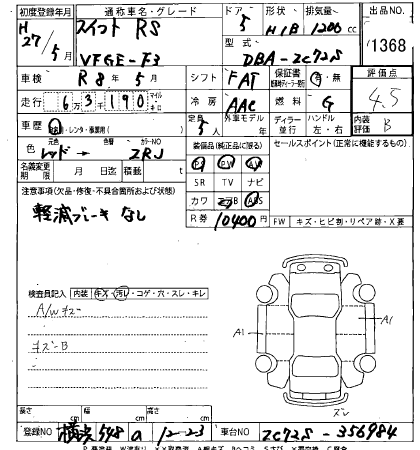 初度登録年月 通称車名・グレード ドア 形状 排気量 出品NO.
H27/5月 スイフト RS 5 H/B 1200cc 1368
VFGE-F3 型式 DBA-ZC72S
車検 R8年5月 シフト FAT 保証書 有・無 評価点
走行 6万3千190 マイル 冷房 AAC 燃料 G 4.5
車歴 レンタ・事業用( ) 定員 5人 外車モデル ディラー 並行 ハンドル 左・右 内装評価 B
色 元色 レッド → 色替 カラーNO ZRJ 装備品(純正品に限る) セールスポイント(正常に機能するもの)
名義変更期限 月 日迄 積載量 t PS PW AW
SR TV ナビ
注意事項(欠品・修復・不具合箇所および状態) カワ エアB ABS
軽減ブレーキ なし R券 10400円 FW キズ・ヒビ割・リペア跡・X要
検査員記入 内装 キズ・汚レ・コゲ・穴・スレ・キレ
A/Wキズ
キズB
A1 A1
スレ
長さ cm 幅 cm 高さ cm
登録NO 横浜 548 a 12-23 車台NO ZC72S-356984